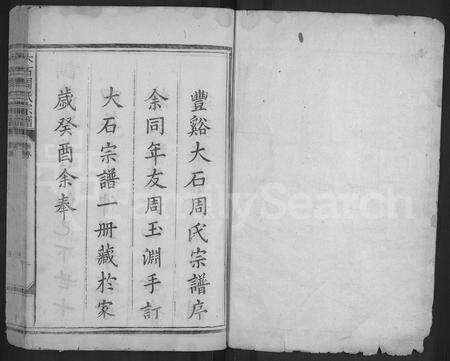 豐谿大石周氏宗譜序
余同年友周玉淵手訂
大石宗譜一冊藏於家
歲癸酉余奉
FamilySearch